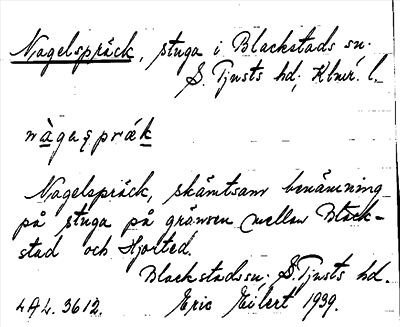 Nagelspräck, stuga i Blackstads sn.
S. Tjusts hd; Klmr. l.
nàgaspräk
Nagelspräck, skämtsam benämning
på stuga på gränsen mellan Black-
stad och Hjorted.
Blackstads sn. S. Tjusts hd.
4AL. 3612. Eric Eilert 1939.